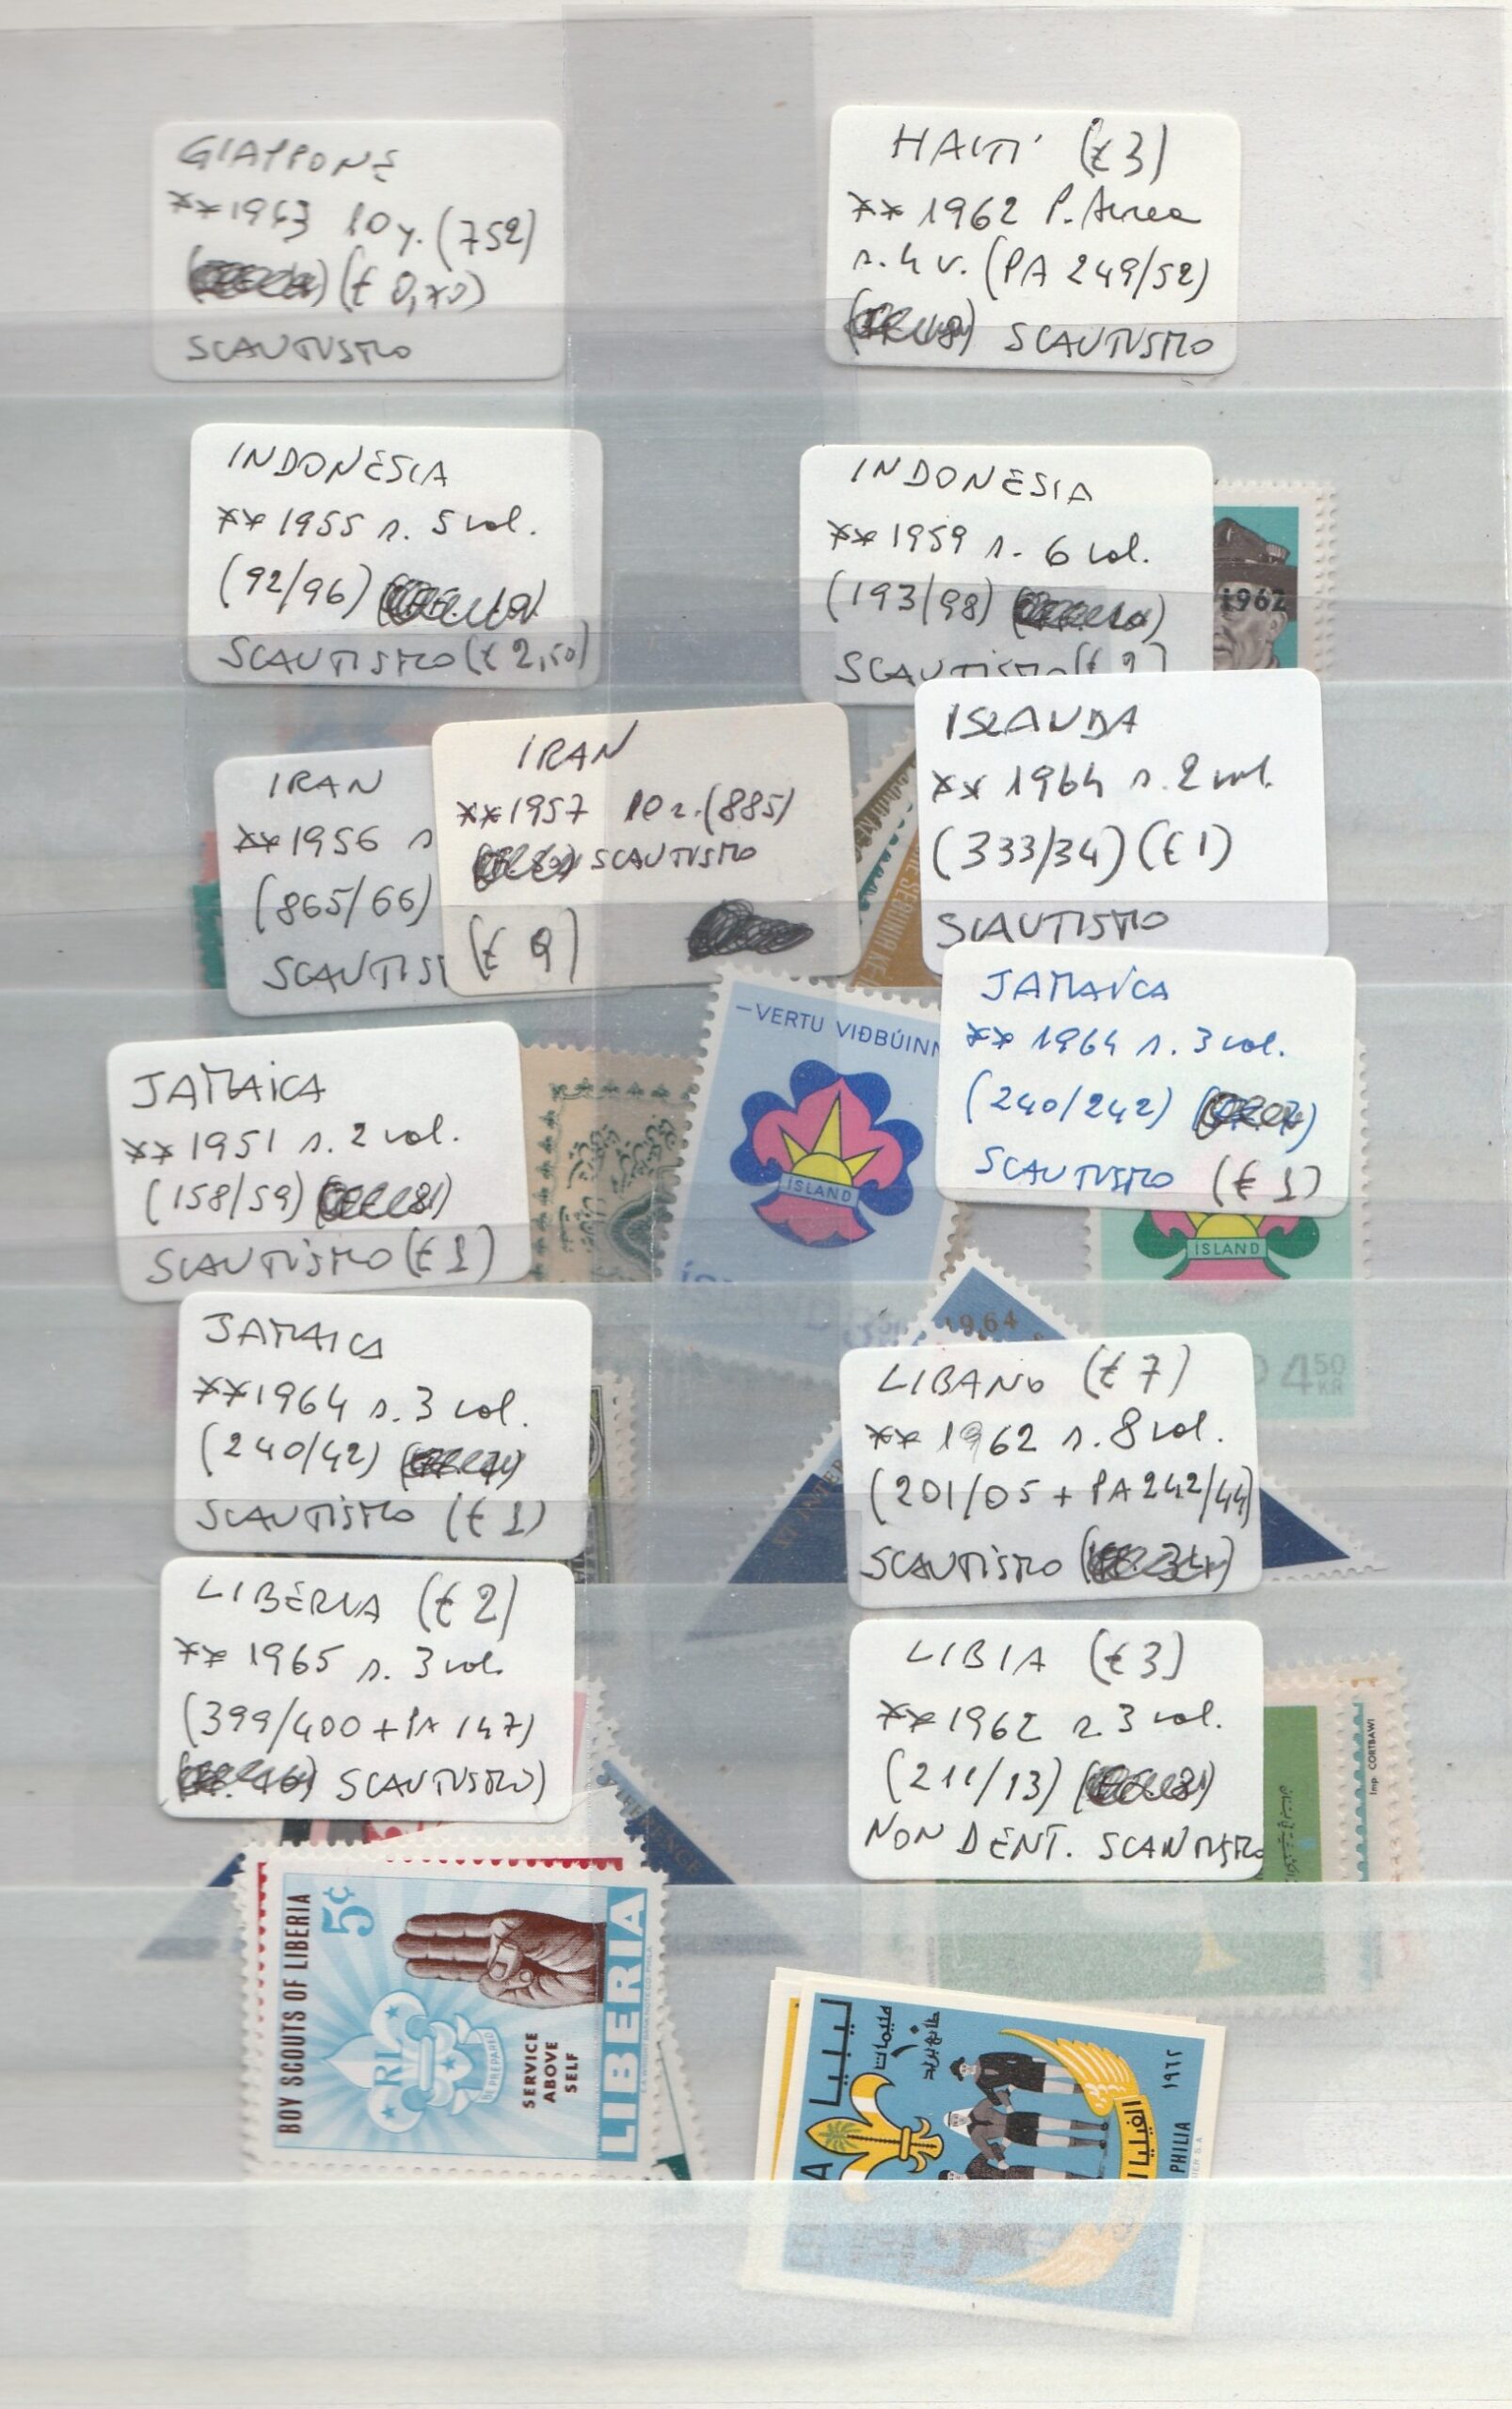 GIAPPONE
** 1963 10 y. (752)
(€ 0,70)
SCAUTISMO
HAITI (€ 3)
** 1962 P. Aerea
s. 4 v. (PA 249/52)
SCAUTISMO
INDONESIA
** 1955 s. 5 val.
(92/96)
SCAUTISMO (€ 2,50)
INDONESIA
** 1959 s. 6 val.
(193/98)
SCAUTISMO
1962
IRAN
** 1956 s
(865/66)
SCAUTIS
IRAN
** 1957 10 r. (885)
SCAUTISMO
(€ 9)
ISLANDA
** 1964 s. 2 val.
(333/34) (€ 1)
SCAUTISMO
–VERTU VIÐBÚINN
ÍSLAND
ÍSLAND
JAMAICA
** 1964 s. 3 val.
(240/242)
SCAUTISMO (€ 1)
ÍSLAND
4 50
KR
JAMAICA
** 1951 s. 2 val.
(158/59)
SCAUTISMO (€ 1)
JAMAICA
** 1964 s. 3 val.
(240/42)
SCAUTISMO (€ 1)
1964
LIBANO (€ 7)
** 1962 s. 8 val.
(201/05 + PA 242/44)
SCAUTISMO
LIBERIA (€ 2)
** 1965 s. 3 val.
(399/400 + PA 147)
SCAUTISMO)
LIBIA (€ 3)
** 1962 s. 3 val.
(211/13)
NON DENT. SCAUTISMO
Imp. CORTBAWI
BOY SCOUTS OF LIBERIA
5c
RL
BE PREPARED
SERVICE
ABOVE
SELF
LIBERIA
ليبيا
١٠
مليمات
طابع بريد
١٩٦٢
الفيليا
PHILIA